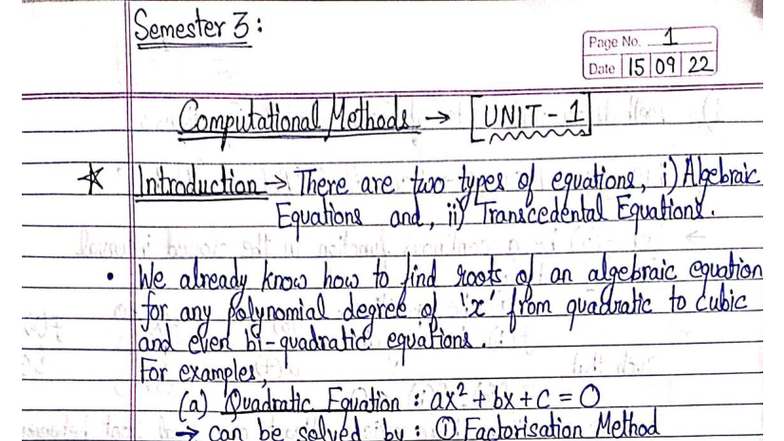 Semester 3:
Page No. 1
Date 15 09 22
Computational Methods → [UNIT - 1]
* Introduction → There are two types of equations, i) Algebraic
Equations and, ii) Transcedental Equations.
• We already know how to find roots of an algebraic equation
for any polynomial degree of 'x' from quadratic to cubic
and even bi-quadratic equations.
For examples,
(a) Quadratic Equation : ax² + bx + c = 0
→ can be solved by : ① Factorisation Method